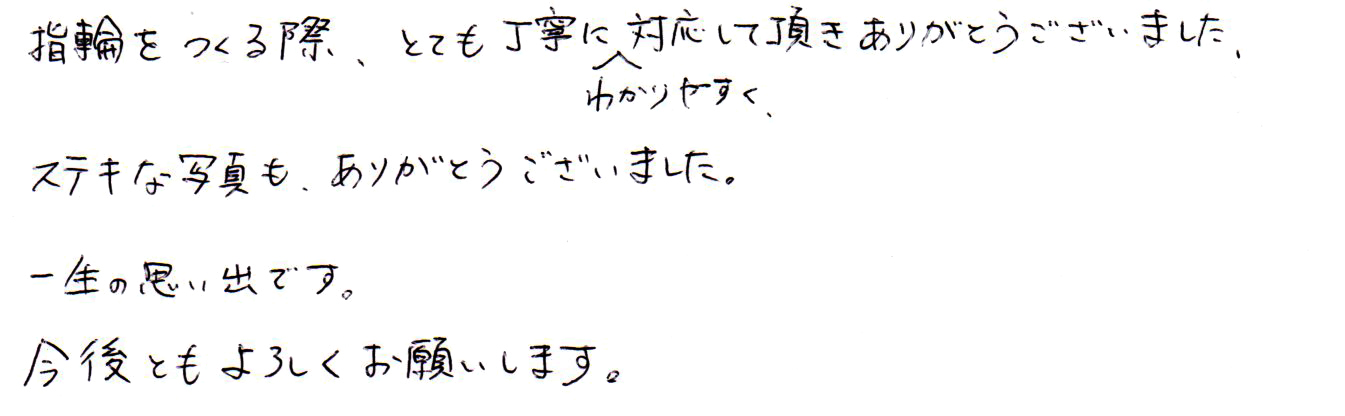 指輪をつくる際、とても丁寧に対応して頂きありがとうございました、
わかりやすく、
ステキな写真も、ありがとうございました。
一生の思い出です。
今後ともよろしくお願いします。